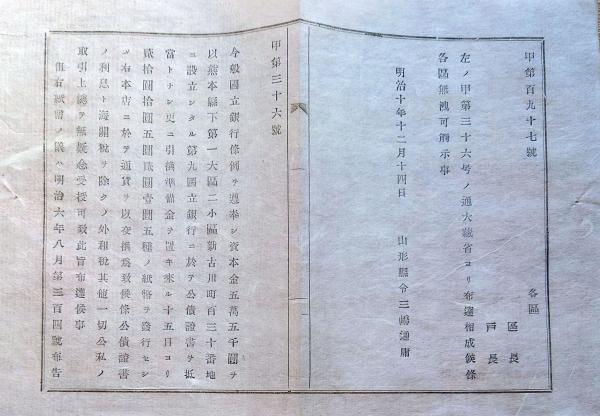 甲第百九十七號
各區
區長
戸長
左ノ甲第三十六号ノ通大藏省ヨリ布達相成候條
各區無洩可觸示事
明治十年十二月十四日
山形縣令三嶋通庸
甲第三十六號
今般國立銀行條例ヲ遵奉シ資本金五萬五千圓ヲ
以熊本縣下第一大區二小區新古川町百三十番地
ニ設立シタル第九國立銀行ニ於テ公債證書ヲ抵
當トナシ更ニ引換準備金ヲ置キ來ル十五日ヨリ
貳拾圓拾圓五圓貳圓壹圓五種ノ紙幣ヲ發行セシ
メ右本店ニ於テ通貨ヲ以交換爲致候條公債證書
ノ利息ト海關稅ヲ除クノ外租稅其他一切公私ノ
取引上總テ無疑念受授可致此旨布達候事
但右紙幣ノ儀ハ明治六年八月第三百四號布告